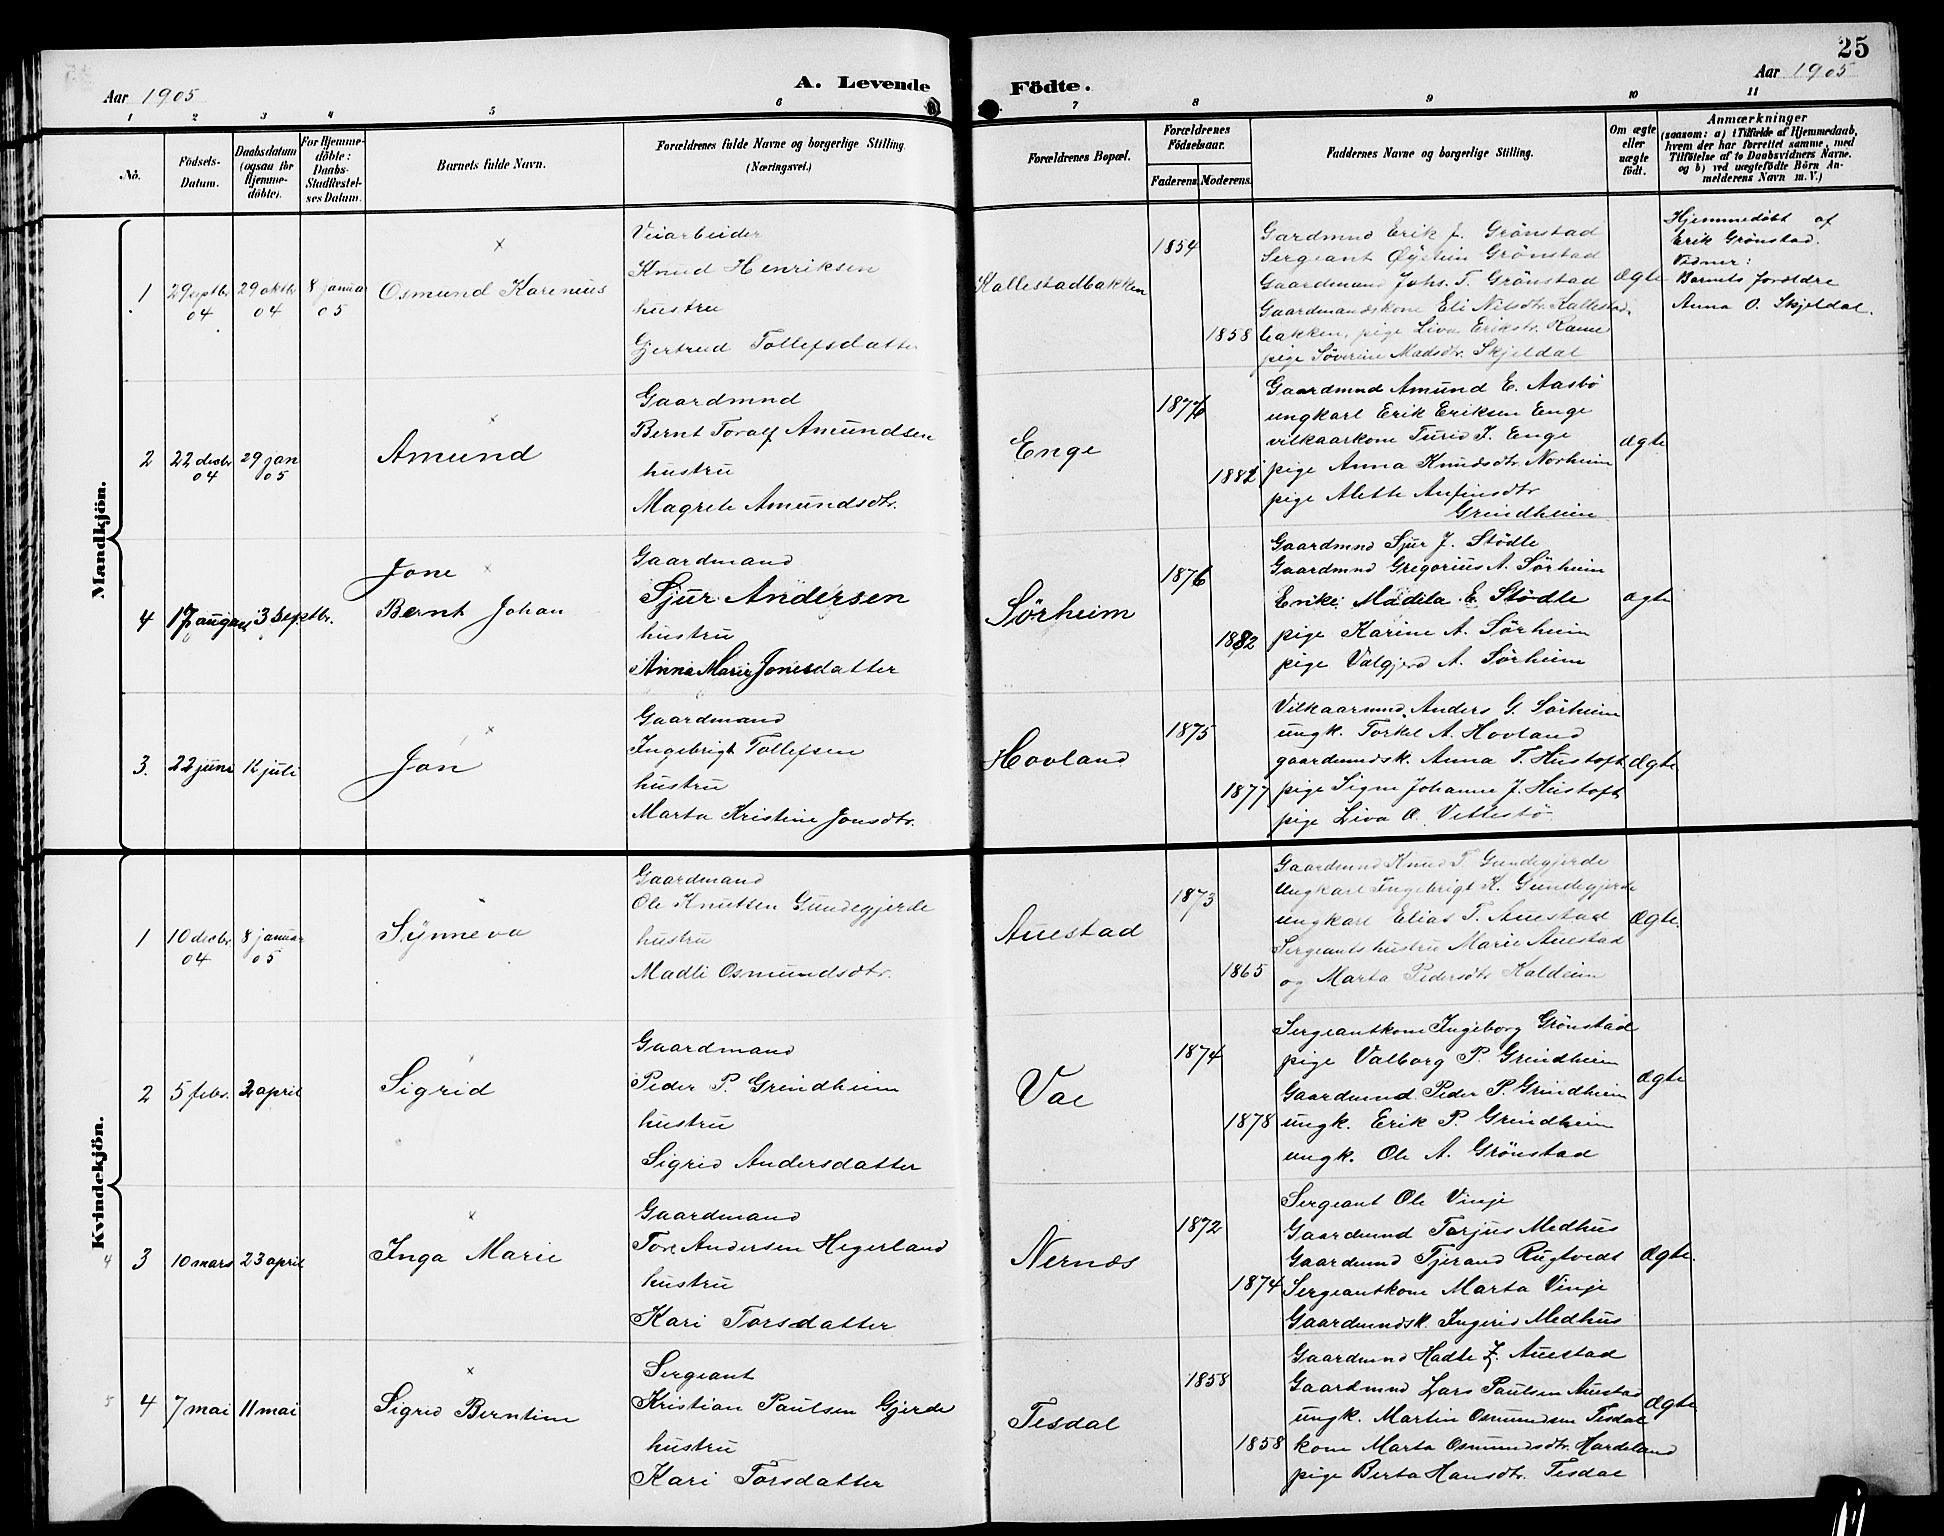 25
Aar 1905
A. Levende Födte.
Aar 1905
1 2 3 4 5 6 7 8 9 10 11
No.
Födsels-Datum.
Daabsdatum (ogsaa for Hjemme-döbte).
For Hjemme-döbte: Daabs-Stadfæstel-ses Datum.
Barnets fulde Navn.
Forældrenes fulde Navne og borgerlige Stilling. (Næringsvei.)
Forældrenes Bopæl.
Forældrenes Födselsaar.
Faderens. Moderens.
Faddernes Navne og borgerlige Stilling.
Om ægte eller uægte født.
Anmærkninger
(saasom: a) i Tilfælde af Hjemmedaab,
hvem der har forrettet samme, med
Tilföielse af to Daabsvidners Navne,
og b) ved uægtefödte Börn An-
melderens Navn m. V.)
Mandkjön.
1
29 septbr 04
29 oktbr 04
8 januar 05
Osmund Karenius
Veiarbeider
Knud Henriksen
hustru
Gjertrud Tollefsdatter
Kallestadbakken
1854
1858
Gardmnd Erik J. Grönstad
Sergeant Øystein Grönstad
Gaardmand Johs. T. Grönstad
Gaardmandskone Eli Nilsdtr. Kallestad-
bakken, pige Liva Erikstr. Rame
pige Söverine Madsdtr. Skjeldal
ægte
Hjemmedöbt af
Erik Grönstad.
Vidner:
Barnets forældre
Anna O. Skjeldal.
2
22 decbr 04
29 jan 05
Amund
Gaardmnd
Bernt Toralf Amundsen
hustru
Magrete Amundsdtr.
Enge
1876
1882
Gaardmnd Amund E. Aasbö
ungkarl Erik Eriksen Enge
vilkaarkone Turid J. Enge
pige Anna Knudsdtr Norheim
pige Alette Anfinsdtr
Grindheim
ægte
4
17 august
3 septbr.
Jone
Bernt Johan
Gaardmand
Sjur Andersen
hustru
Anna Marie Jonesdatter
Sörheim
1876
1882
Gaardmnd Sjur J. Stödle
Gaardmnd Gregorius A. Sörheim
Enke Madela E. Stödle
pige Karine A. Sörheim
pige Valgjerd A. Sörheim
ægte
3.
22 juni
12 juli
Jon
Gaardmand
Ingebrigt Tollefsen
hustru
Marta Kristine Jonsdtr.
Hovland
1875
1877
Vilkaarmnd. Anders G. Sörheim
ungk. Torkel A. Hovland
gaardmndsk. Anna T. Hustoft
pige Signe Johanne J. Hustoft
pige Liva O. Vettestö
ægte
Kvindekjön.
1
10 decbr. 04
8 januar 05
Synneva
Gaardmand
Ole Knutsen Gundegjerde
hustru
Madli Osmundsdtr.
Auestad
1873
1865
Gaardmnd Knud T. Gundegjerde
Ungkarl Ingebrigt K. Gundegjerde
ungkarl Elias T. Auestad
Sergeants hustru Marie Auestad
og Marta Pedersdtr Kaldeim
ægte.
2
5 febr.
2 april
Sigrid
Gaardmand
Peder P. Grindheim
hustru
Sigrid Andersdatter
Vae
1874
1878
Sergeantkone Ingeborg Grönstad
pige Valborg P. Grindheim
Gaardmnd Peder P. Grindheim
ungk. Erik P. Grindheim
ungk. Ole A. Grönstad
ægte
4
3
10 mars
23 april
Inga Marie
Gaardmand
Tore Andersen Hegerland
hustru
Kari Torsdatter
Nernæs
1872
1874
Sergeant Ole Vinje
Gaardmnd Torjus Medhus
Gaardmnd Tjerand Rugtvedt
Sergeantkone Marta Vinje
Gaardmndsk. Ingerid Medhus
ægte.
5
4
7 mai
11 mai
Sigrid Berntine
Sergeant
Kristian Paulsen Gjerde
hustru
Kari Torsdatter
Tesdal
1858
1858
Gaardmnd Hadle Z. Auestad
Gaardmnd Lars Paulsen Auestad
ungk. Martin Osmundsen Tesdal
kone Marta Osmundsdtr. Hardeland
pige Berta Hansdtr. Tesdal
ægte